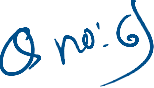 Q no: 6)